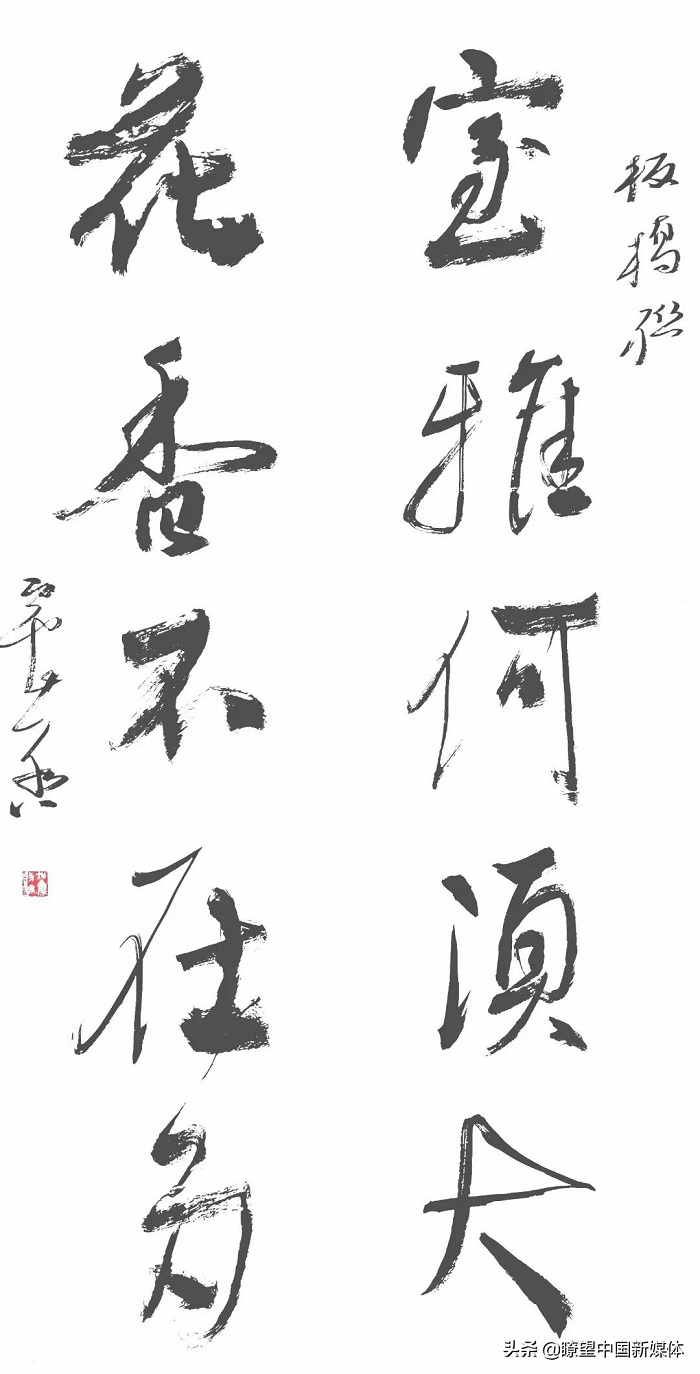 板橋聯
室雅何須大
花香不在多
头条 @瞭望中国新媒体